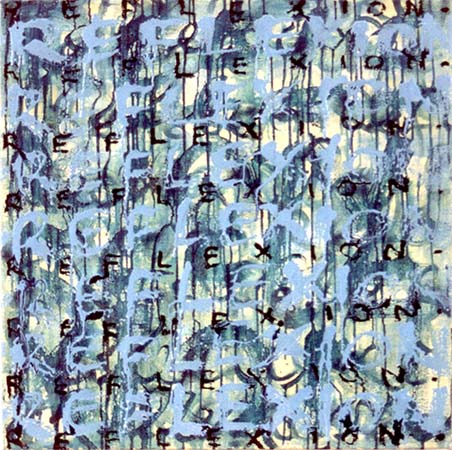 REFLEXION.
REFLEXION
REFLEXION.
REFLEXION
REFLEXION.
REFLEXION
REFLEXION.
REFLEXION
REFLEXION.
REFLEXION
REFLEXION.
REFLEXION
REFLEXION.
REFLEXION
REFLEXION.